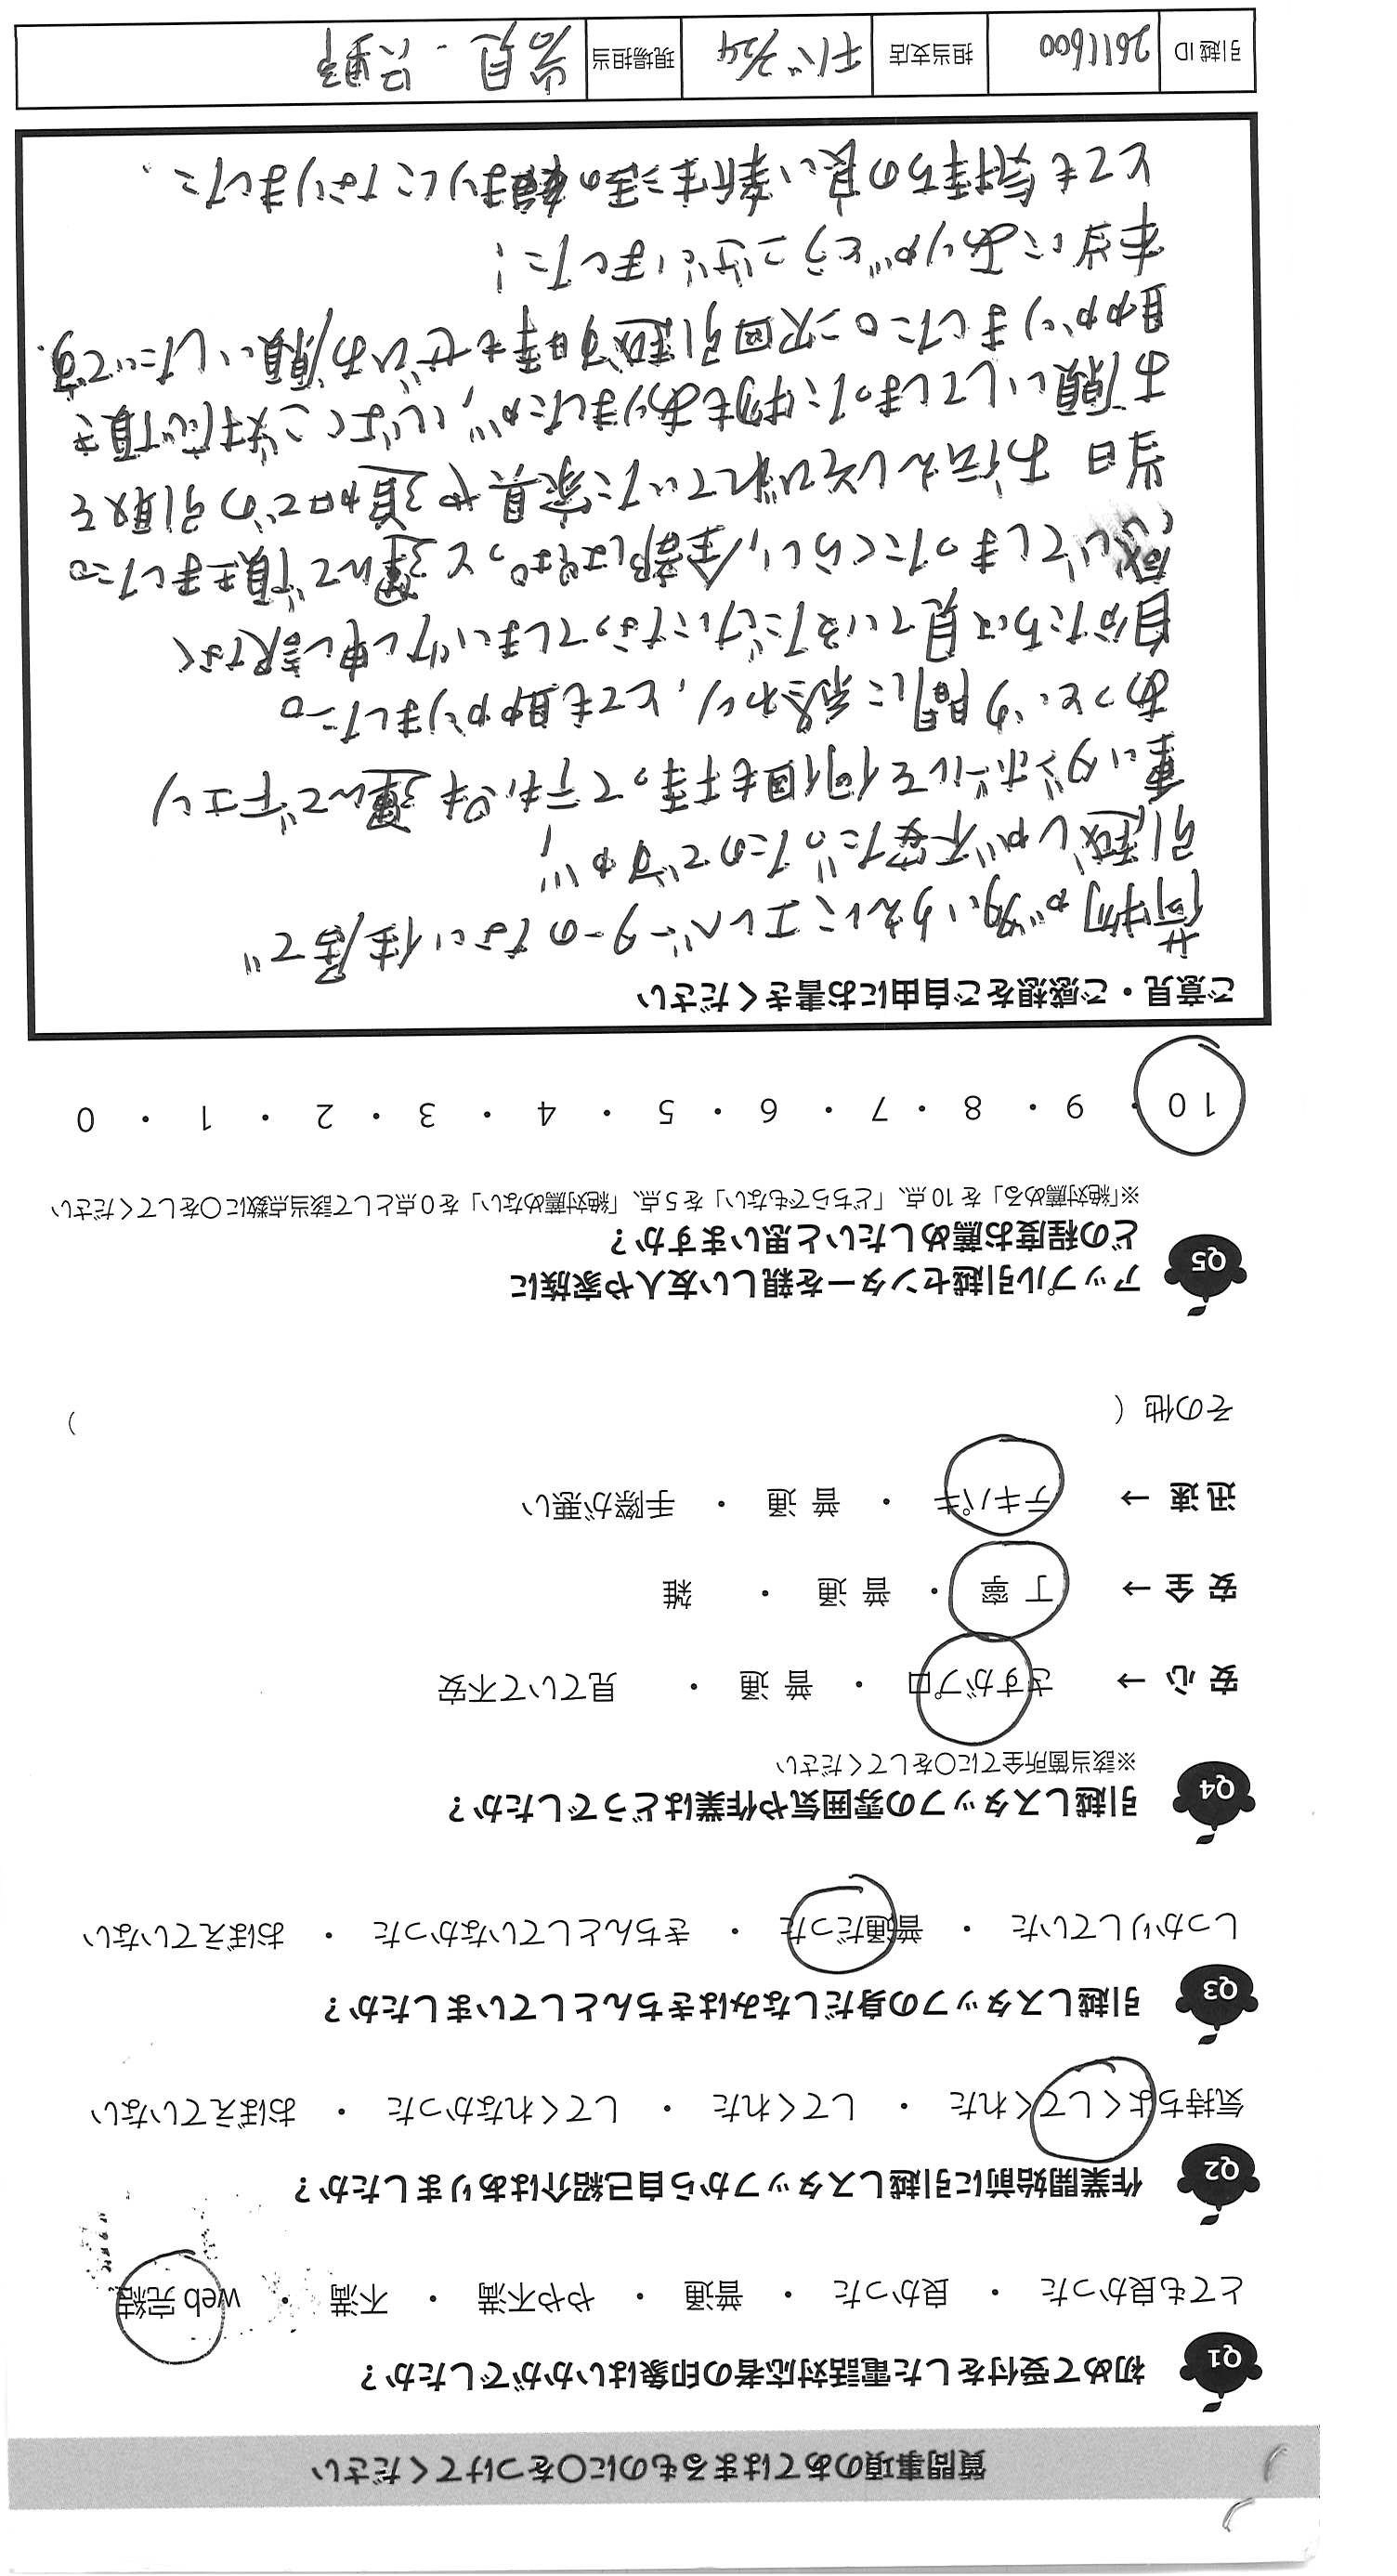 質問事項のあてはまるものに○をつけてください
Q1 初めて受付をした電話対応者の印象はいかがでしたか？
とても良かった ・ 良かった ・ 普通 ・ やや不満 ・ 不満 ・ web 完結
Q2 作業開始前に引越しスタッフから自己紹介はありましたか？
気持ちよくしてくれた ・ してくれた ・ してくれなかった ・ おぼえていない
Q3 引越しスタッフの身だしなみはきちんとしていましたか？
しっかりしていた ・ 普通だった ・ きちんとしていなかった ・ おぼえていない
Q4 引越しスタッフの雰囲気や作業はどうでしたか？
※該当箇所全てに○をしてください
安心→ さすがプロ ・ 普通 ・ 見ていて不安
安全→ 丁寧 ・ 普通 ・ 雑
迅速→ テキパキ ・ 普通 ・ 手際が悪い
その他（ ）
Q5 アップル引越センターを親しい友人や家族に
どの程度お薦めしたいと思いますか？
※「絶対薦める」を10点、「どちらでもない」を5点、「絶対薦めない」を0点として該当点数に○をしてください
10 ・ 9 ・ 8 ・ 7 ・ 6 ・ 5 ・ 4 ・ 3 ・ 2 ・ 1 ・ 0
ご意見・ご感想をご自由にお書きください
荷物が多いうえにエレベーターのない住居で
引越しが不安だったのですが、
重いダンボールを何個も持ってテキパキ運んで下さり
あっという間に終わり、とても助かりました。
自分たちは見ているだけになってしまい少し申し訳なく
感じてしまったくらい、全部ぱぱっと運んで頂きました。
当日 お伝えしそびれていた家具や追加での引取を
お願いしてしまった物もありましたが、心よくご対応頂き
助かりました。次回引越す時もぜひお願いしたいです。
本当にありがとうございました！
とても気持ちの良い新生活の始まりになりました。
引越ID 2611600 担当支店 千バ 2/24 現場担当 岩見・氏野